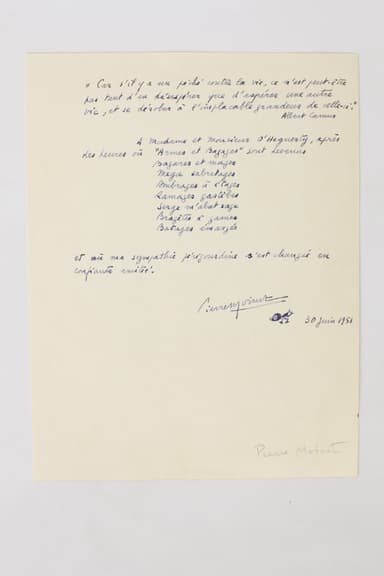 " Car s'il y a un péché contre la vie, ce n'est peut-être
pas tant d'en désespérer que d'espérer une autre
vie, et se dérober à l'implacable grandeur de celle-ci."
Albert Camus
A Madame et Monsieur d'Heguerty, après
des heures où "Armes et Bagages" sont devenus
Bagares et mages
Mega sabretages
Ombrages à étages
Ramages
Serge m'abat sage
à games
Batages émargés
et où ma sympathie périgourdine s'est changée en
confiante amitié.
30 Juin 1951
Pierre